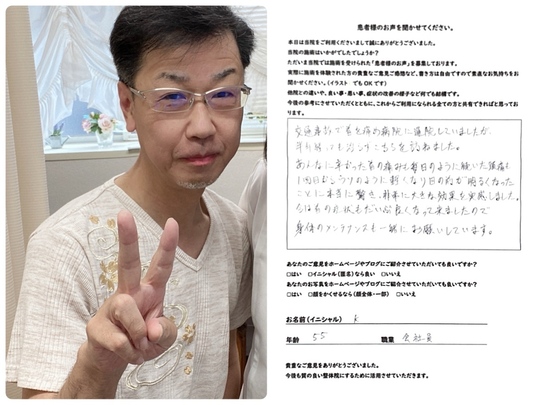 患者様のお声を聞かせてください。
本日は当院をご利用くださいまして誠にありがとうございました。
当院の施術はいかがでしたでしょうか？
ただいま当院では施術を受けられた「患者様のお声」を募集しております。
実際に施術を体験された方の貴重なご意見ご感想など、書き方は自由ですので素直なお気持ちをお
聞かせください。（イラスト でもOKです）
他院との違いや、良い事・悪い事、症状の改善の様子など何でも結構です。
今後の参考にさせていただくとともに、これからご利用になられる全ての方と共有できればと思ってお
ります。
交通事故で首を痛め病院に通院していましたが、
あんなに辛かった首の痛みも毎日のように続いた頭痛も
ことに本当に驚き、非常に大きな効果を実感しました。
身体のメンテナンスも一緒にお願いしています。
あなたのご意見をホームページやブログにご紹介させていただいても良いですか？
□はい □イニシャル（匿名）なら良い □いいえ
あなたのお写真をホームページやブログにご紹介させていただいても良いですか？
□はい □顔をかくせるなら（顔全体・一部） □いいえ
お名前（イニシャル） K
年齢 55 職業 会社員
貴重なご意見をありがとうございました。
今後も質の良い整体院にするために活用させていただきます。